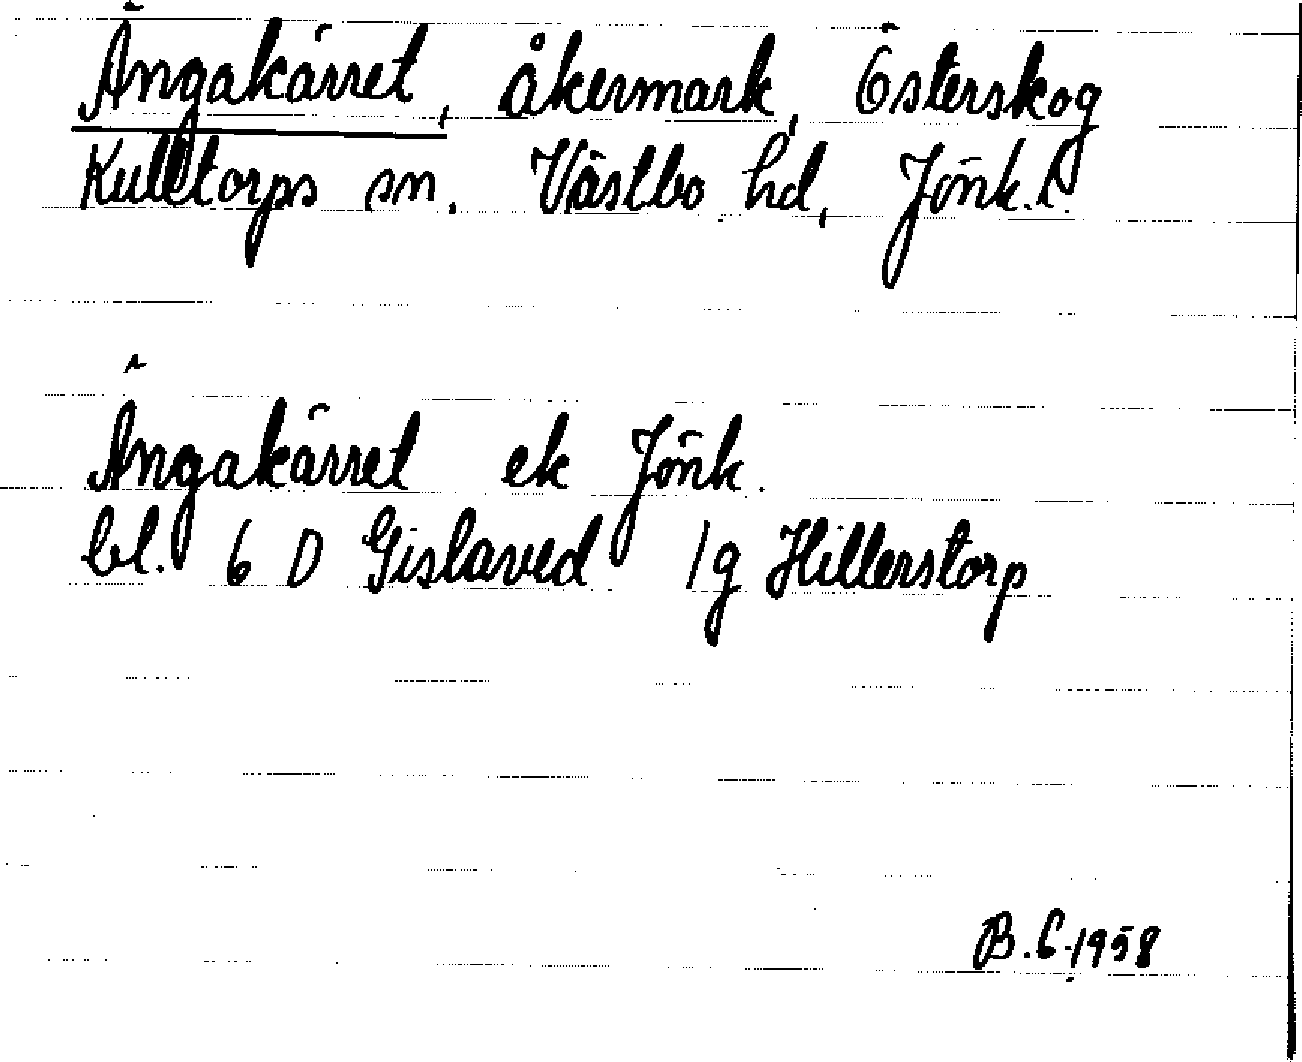 Ängakärret, åkermark, Österskog
Kulltorps sn. Västbo hd, Jönk.l.
Ängakärret ek Jönk.
bl. 6 D Gislaved 1g Hillerstorp
B.L 1958